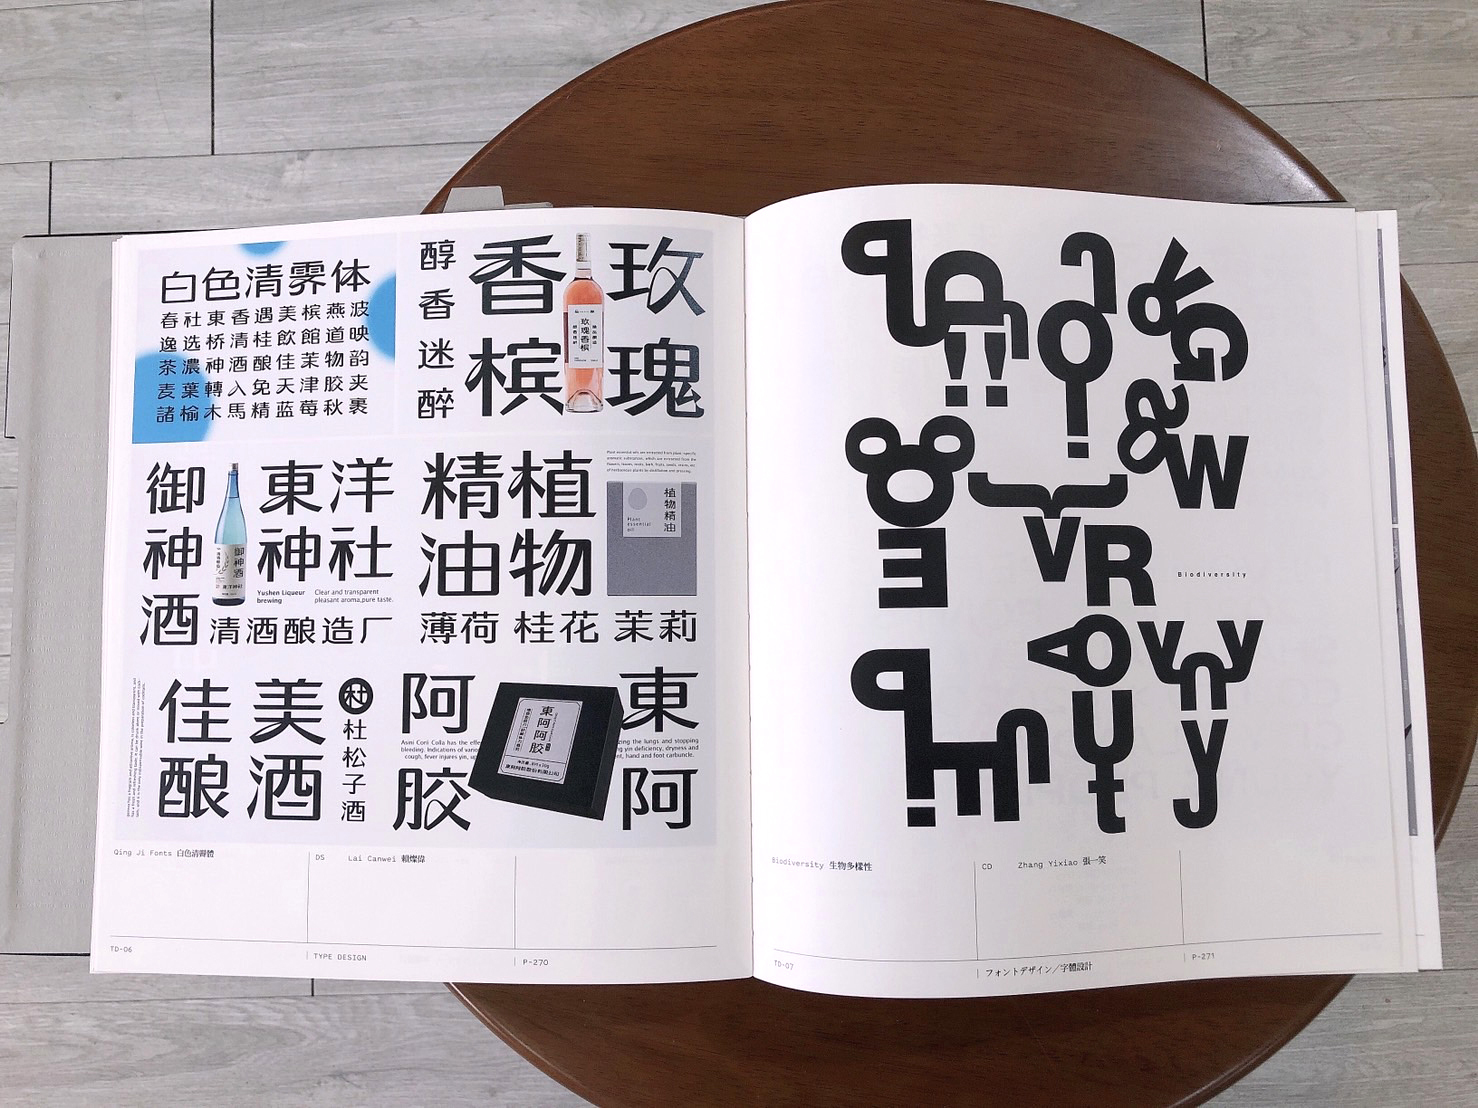 白色清霁体
春社東香遇美槟燕波
逸选桥清桂飲館道映
茶濃神酒酿佳茉物韵
麦葉轉入免天津胶夹
諸榆木馬精蓝莓秋裹
醇香迷醉
香槟
玫瑰
玫瑰香槟
御神酒
御神酒
東洋
神社
Yushen Liqueur
brewing
Clear and transparent
pleasant aroma,pure taste.
清酒酿造厂
精植
油物
植物精油
Plant
Essential
oil
薄荷 桂花 茉莉
佳美
酿酒
杜
杜松子酒
阿胶
東阿
東阿阿胶
Qing Ji Fonts 白色清霽體
DS Lai Canwei 賴燦偉
TD-06
TYPE DESIGN
P-270
Biodiversity
Biodiversity 生物多樣性
CD Zhang Yixiao 張一笑
TD-07
フォントデザイン／字體設計
P-271